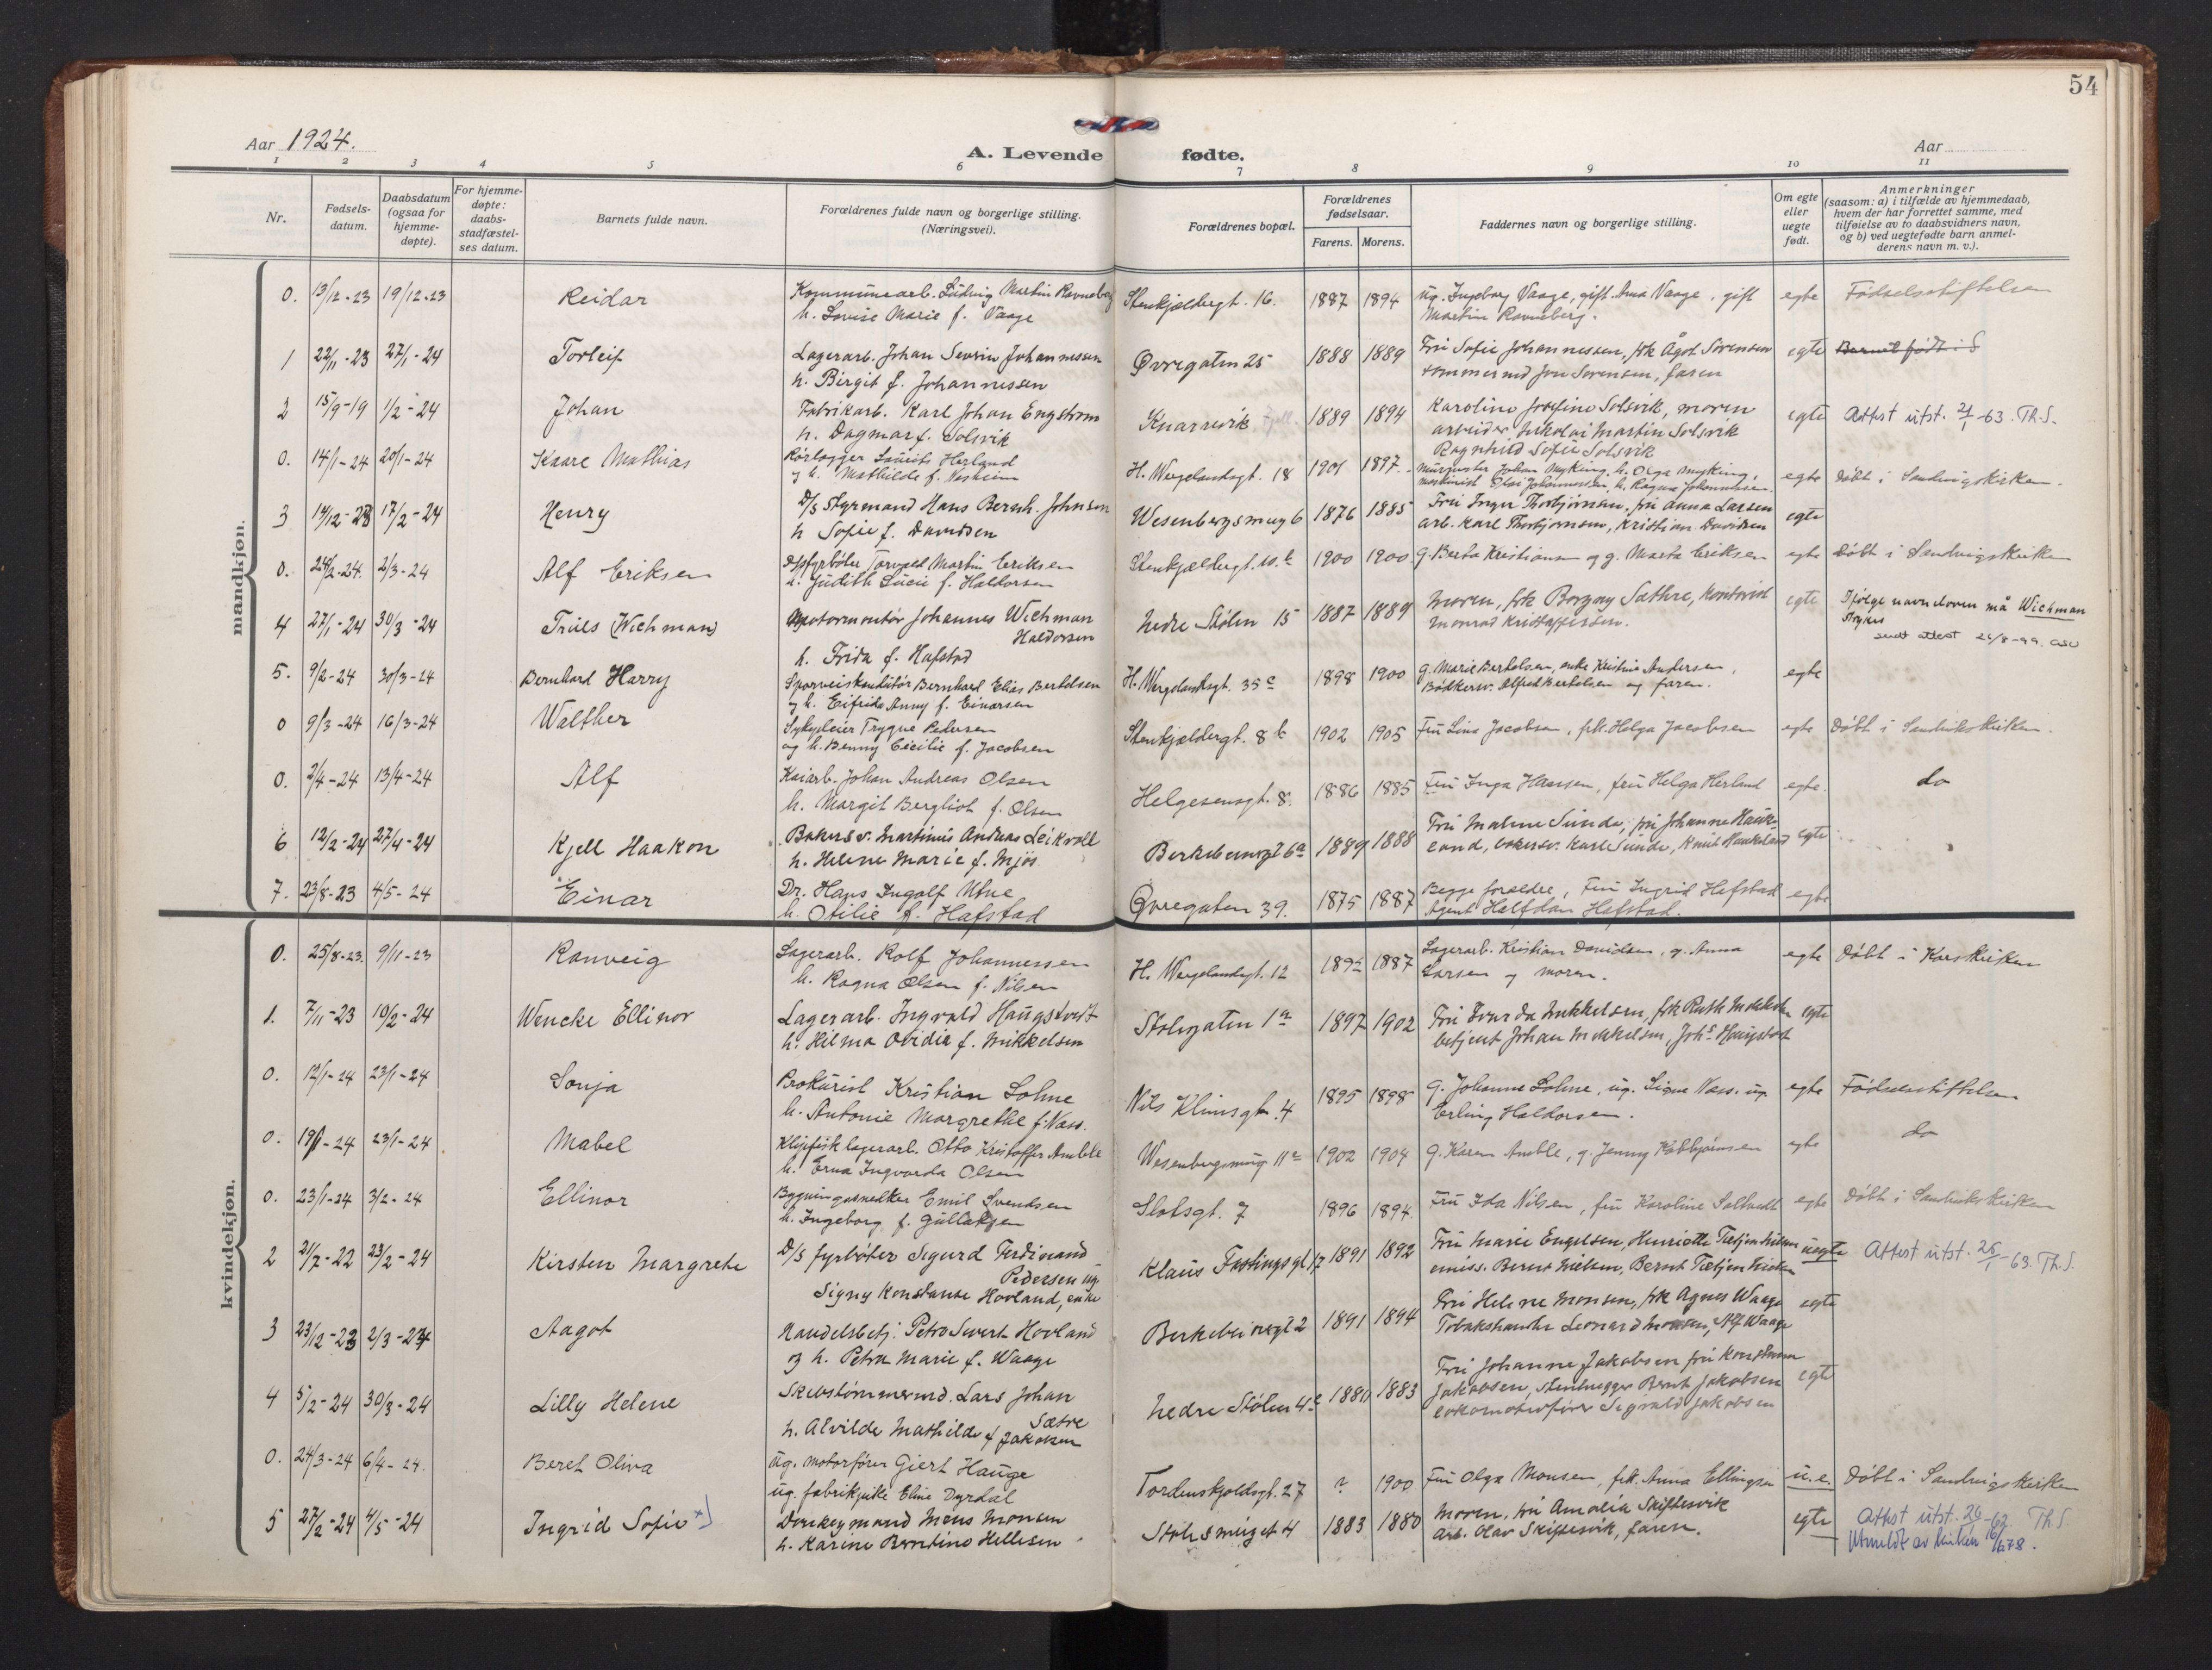 54
Aar 1924.
A. Levende fødte.
Aar
1 2 3 4 5 6 7 8 9 10 11
Nr.
Fødsels-
datum.
Daabsdatum
(ogsaa for
hjemme-
døpte).
For hjemme-
døpte:
daabs-
stadfæstel-
ses datum.
Barnets fulde navn.
Forældrenes fulde navn og borgerlige stilling.
(Næringsvei).
Forældrenes bopæl.
Forældrenes
fødselsaar.
Farens. Morens.
Faddernes navn og borgerlige stilling.
Om egte
eller
uegte
født.
Anmerkninger
(saasom: a) i tilfælde av hjemmedaab,
hvem der har forrettet samme, med
tilføielse av to daabsvidners navn,
og b) ved uegtefødte barn anmel-
derens navn m. v.).
mandkjøn.
0. 13/12-23 19/12-23 Reidar Kommunearb. Ludvig Martin Ravneberg Stenkjældergt. 16. 1887 1894 ug. Ingeborg Vaage, gift Anna Vaage, gift egte Fødselsstiftelsen
h. Lovise Marie f. Vaage Martin Ravneberg.
1 22/11-23 27/1-24 Torleif Lagerarb. Johan Severin Johannessen Øvregaten 25 1888 1889 Fru Sofie Johannessen, frk Ågot Sørensen egte Barnet født i S
h. Birgit f. Johannessen tømmermd Jon Sørensen, faren
2 15/9-19 1/2-24 Johan Fabrikarb. Karl Johan Engstrøm Knarrevik 1889 1894 Karoline Josefine Solsvik, moren egte Attest utst. 21/1-63. Th.S.
h. Dagmar f. Solsvik arbeider Nikolai Martin Solsvik
Ragnhild Sofie Solsvik
0. 14/1-24 20/1-24 Kaare Mathias Rørlægger Lauits Herland H. Wergelandsgt. 18 1901 1897 Murmester Johan Myking, h. Olga Myking, egte Døbt i Sandvigskirken.
og h. Mathilde f. maskinist Olai Johannessen, h. Ragna Johannessen.
3 14/12-23 17/2-24 Henry D/S Styrmand Hans Bernh. Johnsen Wesenbergsmug 6 1876 1885 Fru Inger Thorbjørnsen, fru Anna Larsen egte
h Sofie f. Davidsen arb. Karl Thorbjørnsen, Kristian Davidsen
0. 24/2-24. 2/3-24 Alf Eriksen D/S fyrbøter Torvald Martin Eriksen Stenkjældergt. 10.b 1900 1900 g. Berta Kristiansen og g. Marta Eriksen egte Døbt i Sandvigskirken
h. Judith Lucie f. Haldorsen
4 27/1-24 30/3-24 Truls (Wichman) Motormontør Johannes Wichman Nedre Stølen 15 1887 1889 Moren, frk Borgny Sæthre, Kontorist egte Ifølge navneloven må Wichman
Haldorsen Monrad Kristoffersen. strykes
h. Frida f. Hafstad sendt attest 26/8-99.
5. 9/2-24 30/3-24 Bernhard Harry Sporveiskonduktør Bernhard Elias Bertelsen H. Wergelandsgt. 35c 1898 1900 g. Marie Bertelsen, enke Kristine Andersen, egte
og h. Elfrida Anny f. Einarsen Bødkersv. Alfred Bertelsen og faren.
0 9/3-24 16/3-24 Walther Trygve Pedersen Stenkjældergt. 8b 1902 1905 Fru Lina Jacobsen, frk. Helga Jacobsen egte Døbt i Sandvikskirken.
og h. Benny Cecilie f. Jacobsen
0. 2/4-24 13/4-24 Alf Kaiarb. Johan Andreas Olsen Helgesensgt. 8. 1886 1885 Fru Inga Hansen, fru Helga Herland egte. do
h. Margit Bergliot f. Olsen
6 12/2-24 27/4-24 Kjell Haakon Bakersv. Martinius Andreas Leikvoll Birkebeinergt 6a 1889 1888 Fru Malene Sunde, fru Johanne Hauke- egte
h. Helene Marie f. Mjøs land, bakersv. Karl Sunde, Knut Haukeland
7. 23/8-23 4/5-24 Einar Dr. Hans Ingolf Utne Øvregaten 39. 1875 1887 Begge forældre, Fru Ingrid Hafstad egte
h. Otilie f. Hafstad Agent Halfdan Hafstad.
kvindekjøn.
0. 25/8-23. 9/11-23 Ranveig Lagerarb. Rolf Johannessen H. Wergelandsgt. 12 1887 Lagerarb. Kristian Davidsen, g. Anna egte Døbt i Korskirken
h. Ragna Olsen f. Nilsen Larsen og moren.
1. 7/11-23 10/2-24 Wencke Ellinor Lagerarb. Ingvald Haugstvedt Stølegaten 1a 1897 1902 Fru Mikkelsen, frk Ruth Mikkelsen egte
h. Hilma Ovidia f. Mikkelsen betjent Johan Mikkelsen, Johs Haugstvedt
0. 12/1-24 23/1-24 Sonja Prokurist Kristian Lohne Nils Klimsgt. 4 1895 1898 g. Johanne Lohne, ug. Signe Næss. ug. egte Fødselsstiftelsen
h. Antonie Margrethe f. Næss. Erling Haldorsen.
0. 19/1-24 23/1-24 Mabel Klipfisk lagerarb. Otto Kristoffer Amble Wesenbergsmug 11a 1902 1904 g. Karen Amble, g. Jenny egte do
h. Erna Ingvarda Olsen
0. 23/1-24 3/2-24 Ellinor Bygningssnedker Emil Svendsen Slotsgt. 7 1896 1894. Fru Ida Nilsen, fru Karoline Saltvedt egte Døbt i Sandvikskirken
h. Ingeborg f. Gullaksen
2 21/7-22 23/2-24 Kirsten Margrete D/S fyrbøter Sigurd Ferdinand Klaus Fastingsgt 17 1891 1892 Fru Marie Engelsen, Henriette Tietjen Nielsen uegte Attest utst. 26/1-63. Th.S.
Pedersen ug. emiss. Bernt Nielsen, Bernt Tietjen Nielsen
Signy Konstanse Hovland, enke
3 23/12-23 2/3-24 Aagot Handelsbetj. Petro Sivert Hovland Birkebeinergt 2 1891 1894 Fru Helene Monsen, frk Agnes Waage egte
og h. Petra Marie f. Waage Tobakshandler Leonard Monsen, Alf Waage
4 5/2-24 30/3-24 Lilly Helene Skibstømmermd. Lars Johan Nedre Stølen 4c 1880 1883 Fru Johanne Jakobsen fru egte
Sætre Jakobsen, Stenhugger Bernt Jakobsen
h. Alvilde Mathilde f Jakobsen lokomotivfører Sigvald Jakobsen
0. 24/3-24 6/4-24. Beret Oliva ug. motorfører Giert Hauge Tordenskjoldsgt. 27 ? 1900 Fru Olga Monsen, frk. Anna Ellingsen u.e. Døbt i Sandvigskirken
ug. fabrikpike Eline Dyrdal
5 27/2-24 4/5-24 Ingrid Sofie x) Donkeymand Mons Monsen Stølsmuget 4 1883 1880 Moren, fru Amalia Skiftesvik egte Attest utst. 26-62. Th.S.
h. Karine Berntine Hellesen arb. Olav Skiftesvik, faren. Utmeldt av kirken 16/6 78.